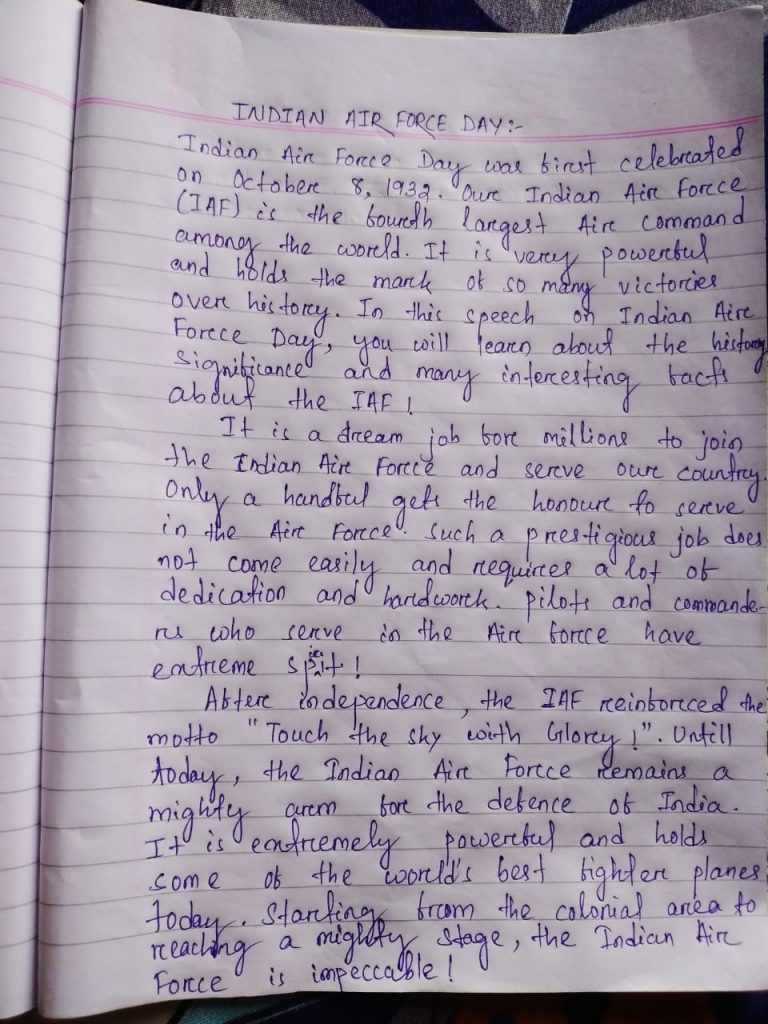 INDIAN AIR FORCE DAY:-
Indian Air Force Day was first celebrated
on October 8, 1932. Our Indian Air Force
(IAF) is the fourth largest Air command
among the world. It is very powerful
and holds the mark of so many victories
over history. In this speech on Indian Air
Force Day, you will learn about the history
significance and many interesting facts
about the IAF!
It is a dream job for millions to join
the Indian Air Force and serve our country.
Only a handful gets the honour to serve
in the Air Force. Such a prestigious job does
not come easily and requires a lot of
dedication and hardwork. pilots and commande-
rs who serve in the Air force have
extreme spirit!
After independence, the IAF reinforced the
motto "Touch the sky with Glory!". Untill
today, the Indian Air Force remains a
mighty arm for the defence of India.
It is extremely powerful and holds
some of the world's best fighter planes
today. Starting from the colonial area to
reaching a mighty stage, the Indian Air
Force is impeccable!